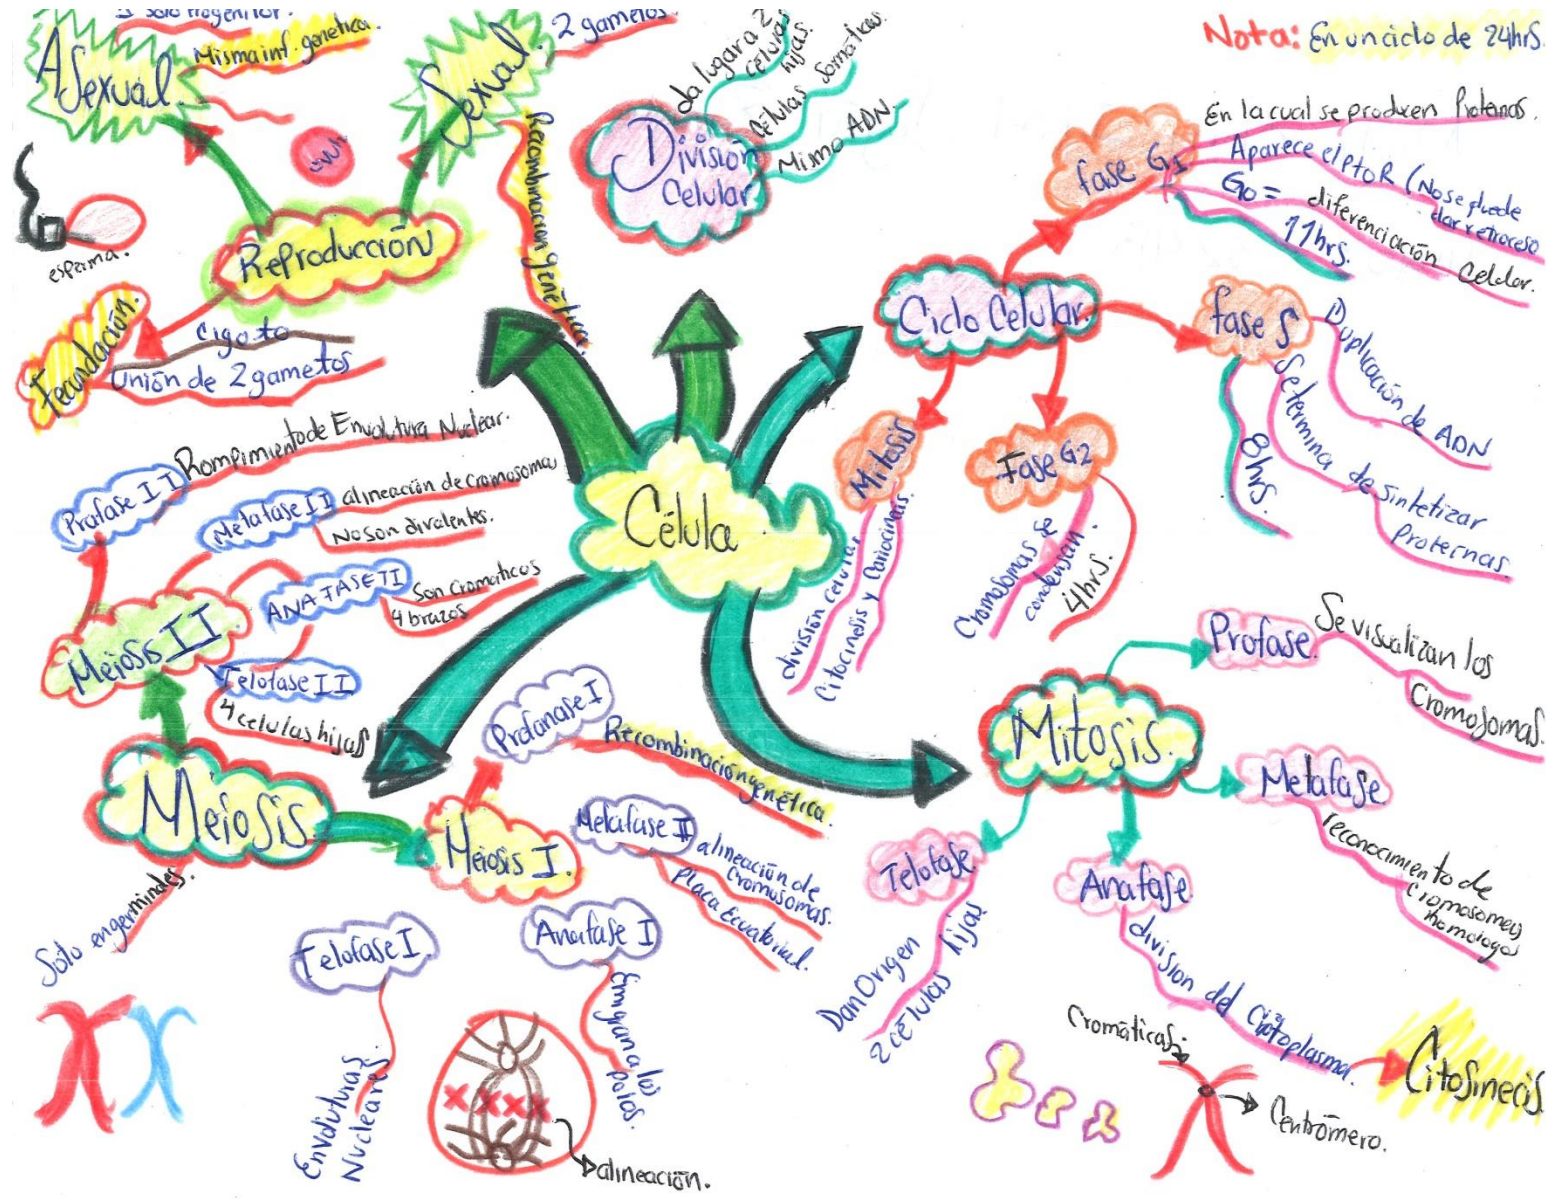 1 solo Progenitor.
ASexual
Misma inf. genetica.
Sexual
2 gametos
Recombinacion genética.
ovulo
esperma.
Reproducción
Fecundación.
Cigoto
Unión de 2 gametos
División
Celular
da lugar a 2
células
hijas.
Células Somaticas.
Mismo ADN.
Nota: En un ciclo de 24hrs.
Ciclo Celular.
fase G1
En la cual se producen Proteinas.
Aparece el pto R (No se puede
dar retroceso
G0 = diferenciación Celular.
11hrs.
fase S
Duplicación de ADN
Se termina de sintetizar
Proteinas.
8hrs.
Fase G2
Cromosomas se
condensan.
4hrs.
Mitosis
división celular.
Citocinesis y Cariocinesis.
Célula
Profase II
Rompimiento de Envoltura Nuclear.
Metafase II
alineación de cromosomas
No son divalentes.
ANAFASE II
Son Cromaticas
4 brazos
Meiosis II
Telofase II
4 celulas hijas
Meiosis
Solo en germinales.
Meiosis I.
Profanase I
Recombinación genética.
Metafase II
alineación de
Cromosomas.
Placa Ecuatorial.
Anafase I
Emigran a los
polos.
Telofase I
Envolturas
Nucleares.
alineación.
Mitosis.
Profase.
Se visualizan los
Cromosomas.
Metafase
reconocimiento de
Cromosomas
homologos
Anafase
division del Citoplasma.
Citosinecis
Telofase
Dan Origen
2 células hijas
Cromáticas.
Centrómero.